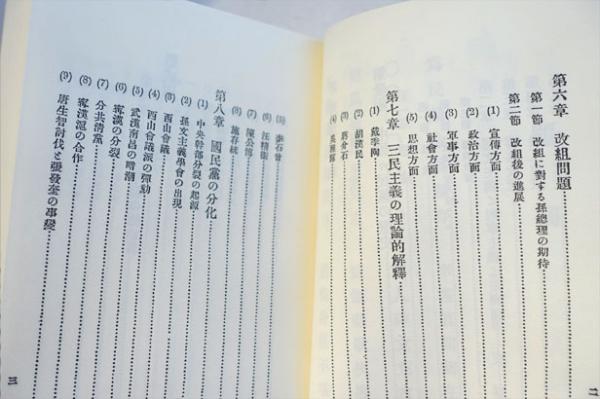 第六章 改組問題
第一節 改組に對する孫總理の期待
第二節 改組後の進展
(1) 宣傳方面
(2) 政治方面
(3) 軍事方面
(4) 社會方面
(5) 思想方面
第七章 三民主義の理論的解釋
(1) 戴季陶
(2) 胡漢民
(3) 蔣介石
(4)
(5) 李石曾
(6) 汪精衞
(7) 陳公博
(8) 施存統
第八章 國民黨の分化
(1) 中央幹部分裂の起源
(2) 孫文主義學會の出現
(3) 西山會議
(4) 西山會議派の彈劾
(5) 武漢南昌の暗潮
(6) 寗漢の分裂
(7) 分共淸黨
(8) 寗漢滬の合作
(9) 唐生智討伐と張發奎の事變